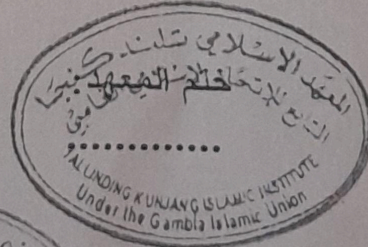 المعهد الإسلامي تلندنغ كنجنغ
التابع للإتحاد الإسلامي
ختم المعهد
.............
TALLINDING KUNJANG ISLAMIC INSTITUTE
Under the Gambia Islamic Union